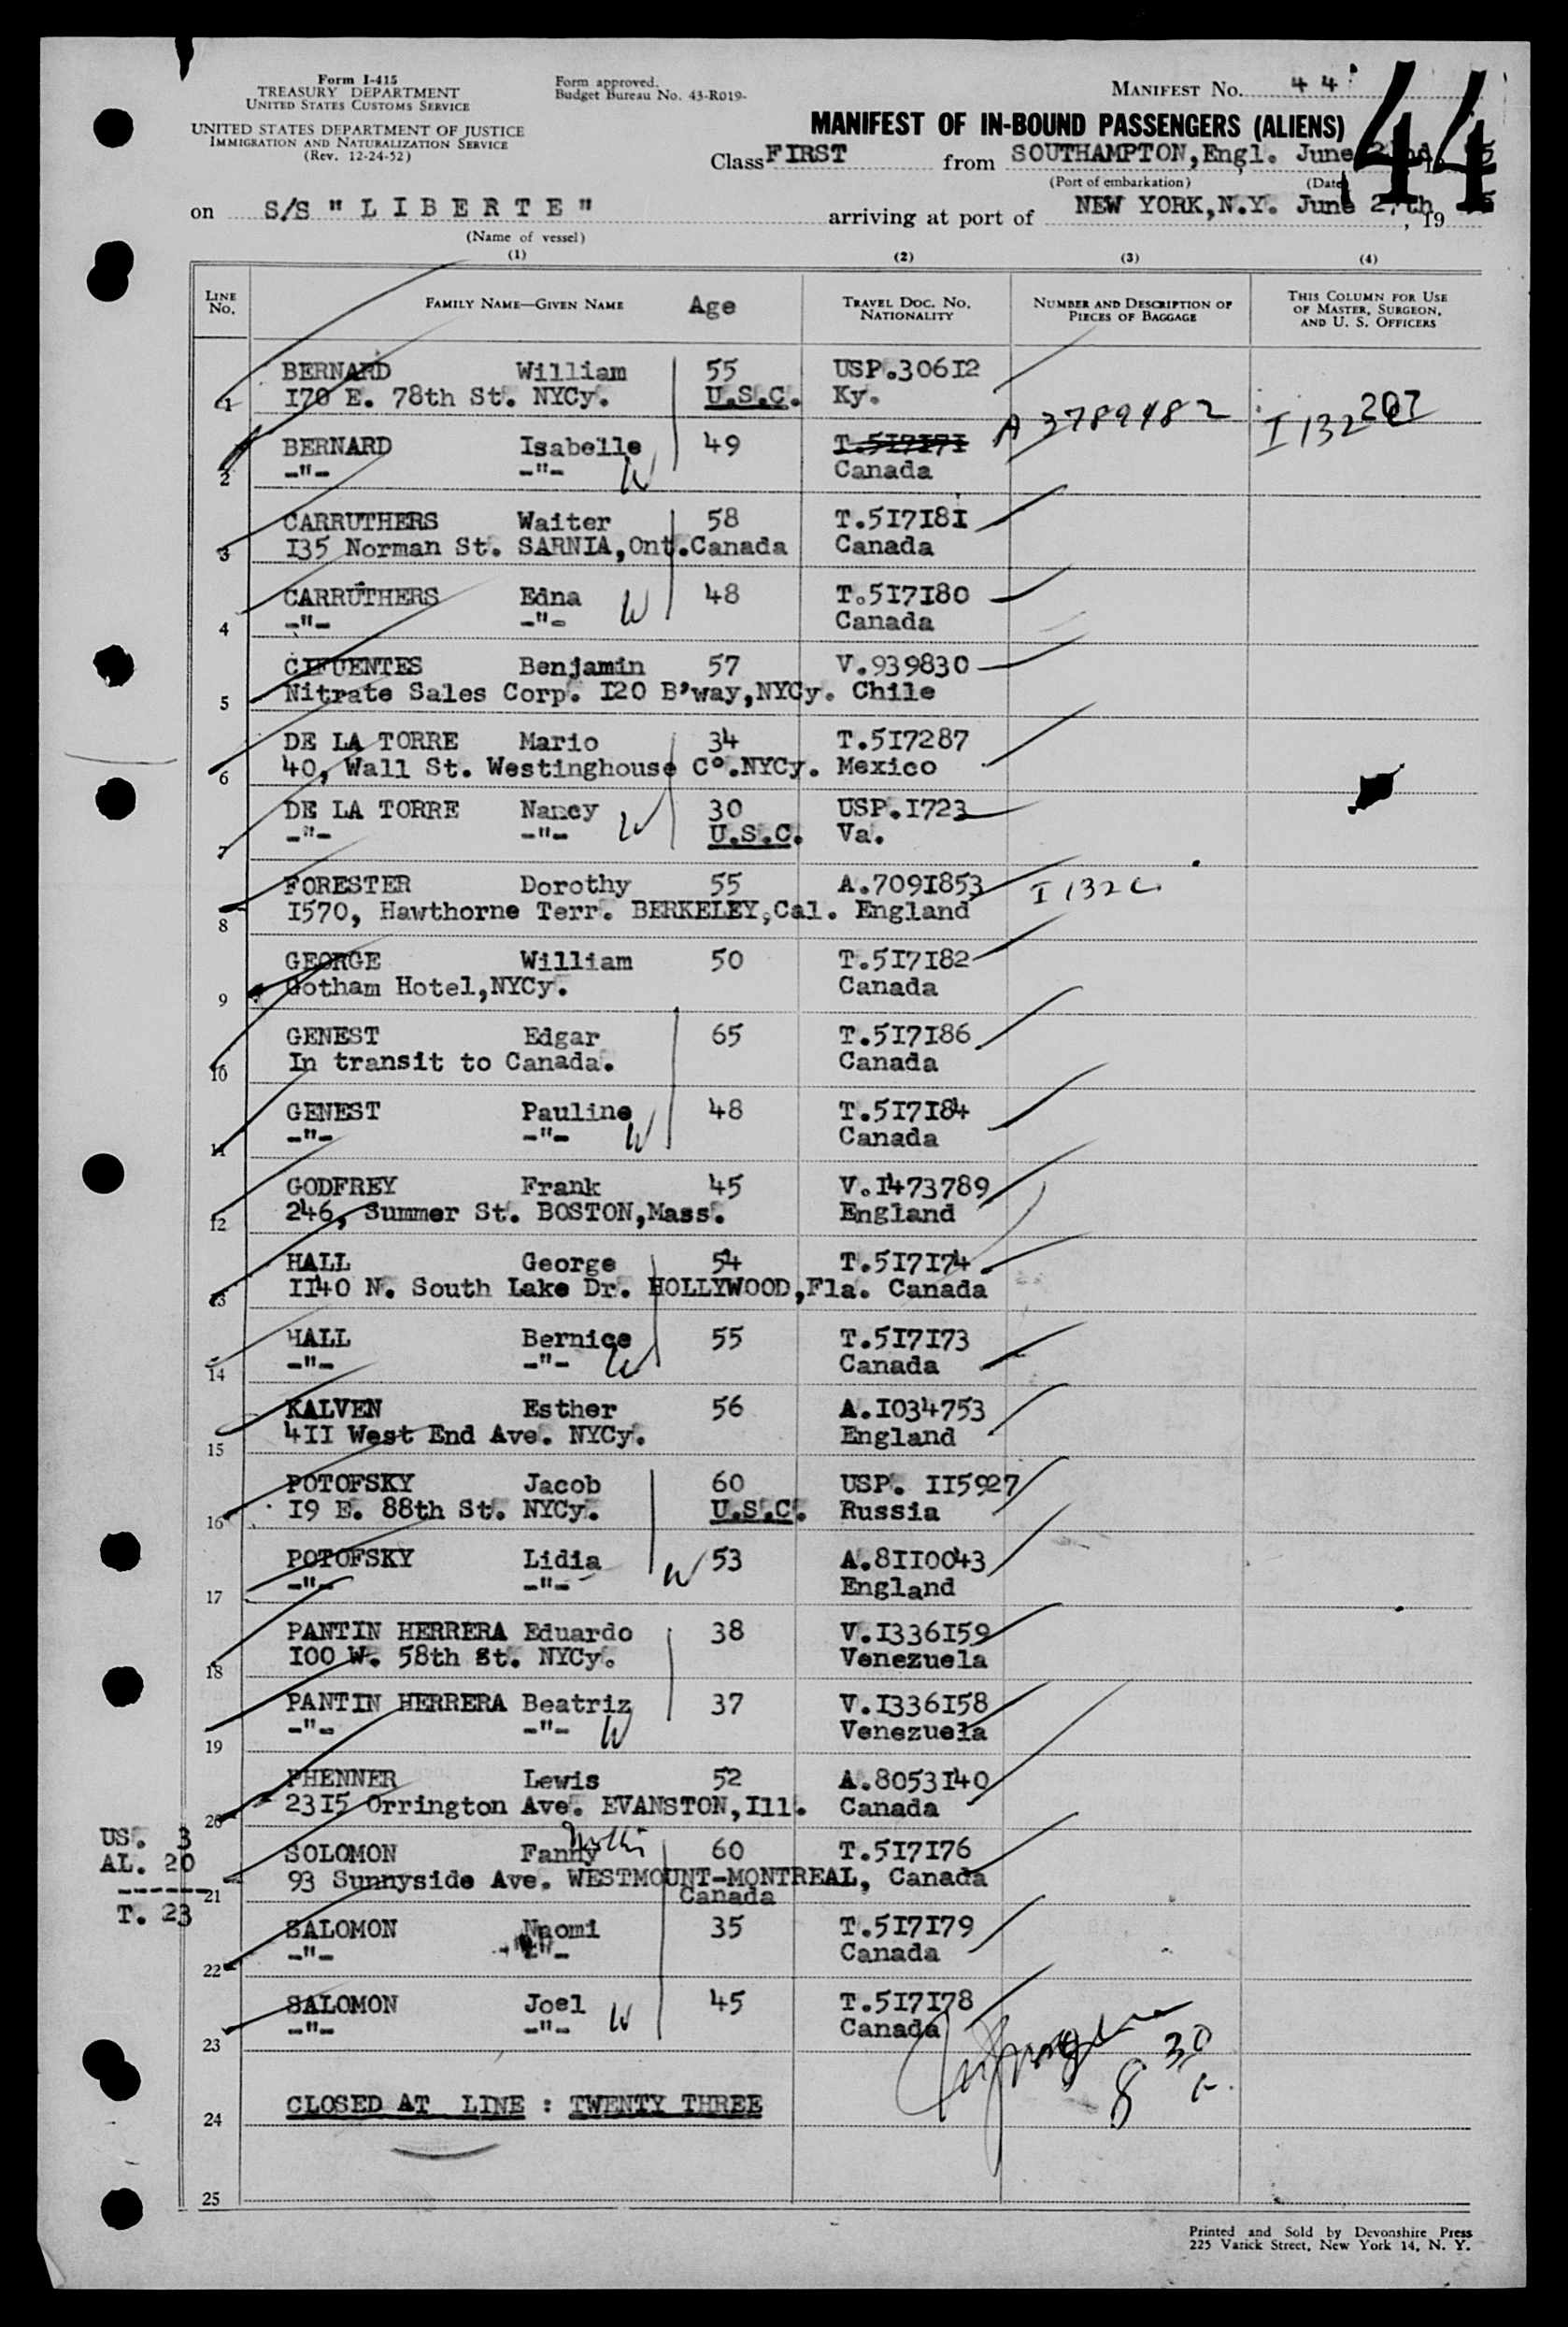 Form I-415
TREASURY DEPARTMENT
UNITED STATES CUSTOMS SERVICE
UNITED STATES DEPARTMENT OF JUSTICE
IMMIGRATION AND NATURALIZATION SERVICE
(Rev. 12-24-52)
Form approved.
Budget Bureau No. 43-R019-
MANIFEST No. 44
44
MANIFEST OF IN-BOUND PASSENGERS (ALIENS)
Class FIRST from SOUTHAMPTON,Engl. June
(Port of embarkation) (Date)
on S/S "LIBERTE" arriving at port of NEW YORK,N.Y. June 27th, 19
(Name of vessel)
(1) (2) (3) (4)
LINE No. FAMILY NAME—GIVEN NAME Age TRAVEL DOC. NO. NATIONALITY NUMBER AND DESCRIPTION OF PIECES OF BAGGAGE THIS COLUMN FOR USE OF MASTER, SURGEON, AND U. S. OFFICERS
BERNARD William 55 USP.30612
1 170 E. 78th St. NYCy. U.S.C. Ky.
A 3789482 I 132 207
BERNARD Isabelle 49 T.517171
2 -"- -"- W Canada
CARRUTHERS Walter 58 T.517181
3 135 Norman St. SARNIA,Ont.Canada Canada
CARRUTHERS Edna W 48 T.517180
4 -"- -"- Canada
CIFUENTES Benjamin 57 V.939830
5 Nitrate Sales Corp. 120 B'way,NYCy. Chile
DE LA TORRE Mario 34 T.517287
6 40, Wall St. Westinghouse C°.NYCy. Mexico
DE LA TORRE Nancy W 30 USP.1723
7 -"- -"- U.S.C. Va.
FORESTER Dorothy 55 A.7091853 I 132 c.
8 1570, Hawthorne Terr. BERKELEY,Cal. England
GEORGE William 50 T.517182
9 Gotham Hotel,NYCy. Canada
GENEST Edgar 65 T.517186
10 In transit to Canada. Canada
GENEST Pauline 48 T.517184
11 -"- -"- W Canada
GODFREY Frank 45 V.1473789
12 246, Summer St. BOSTON,Mass. England
HALL George 54 T.517174
13 1140 N. South Lake Dr. HOLLYWOOD,Fla. Canada
HALL Bernice 55 T.517173
14 -"- -"- W Canada
KALVEN Esther 56 A.1034753
15 411 West End Ave. NYCy. England
POTOFSKY Jacob 60 USP. 115927
16 19 E. 88th St. NYCy. U.S.C. Russia
POTOFSKY Lidia W 53 A.8110043
17 -"- -"- England
PANTIN HERRERA Eduardo 38 V.1336159
18 100 W. 58th St. NYCy. Venezuela
PANTIN HERRERA Beatriz 37 V.1336158
19 -"- -"- W Venezuela
PHENNER Lewis 52 A.8053140
20 2315 Orrington Ave. EVANSTON,Ill. Canada
US. 3
AL. 20
------
T. 23
SOLOMON Fanny 60 T.517176
21 93 Sunnyside Ave. WESTMOUNT-MONTREAL, Canada
Canada
SALOMON Naomi 35 T.517179
22 -"- -"- Canada
SALOMON Joel W 45 T.517178
23 -"- -"- Canada
8 30
24 CLOSED AT LINE : TWENTY THREE
25
Printed and Sold by Devonshire Press
225 Varick Street, New York 14, N. Y.